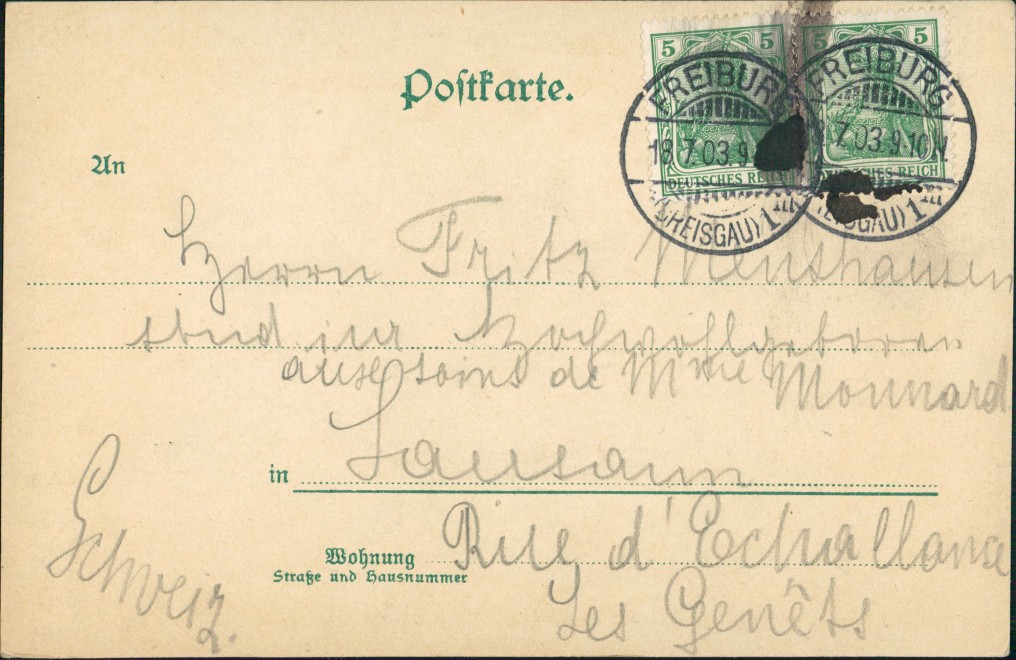 Postkarte.
5 5 5 5
FREIBURG FREIBURG
18.7.03.9- 7.03.9-10N.
DEUTSCHES REICH DEUTSCHES REICH
(BREISGAU) 1 (BREISGAU) 1
An
Herrn Fritz Menshausen
stud iur Hochwohlgeboren
aux soins de Mme Monnard
in Lausann
Wohnung
Straße und Hausnummer
Rue d'Echallance
Les Genêts
Schweiz.